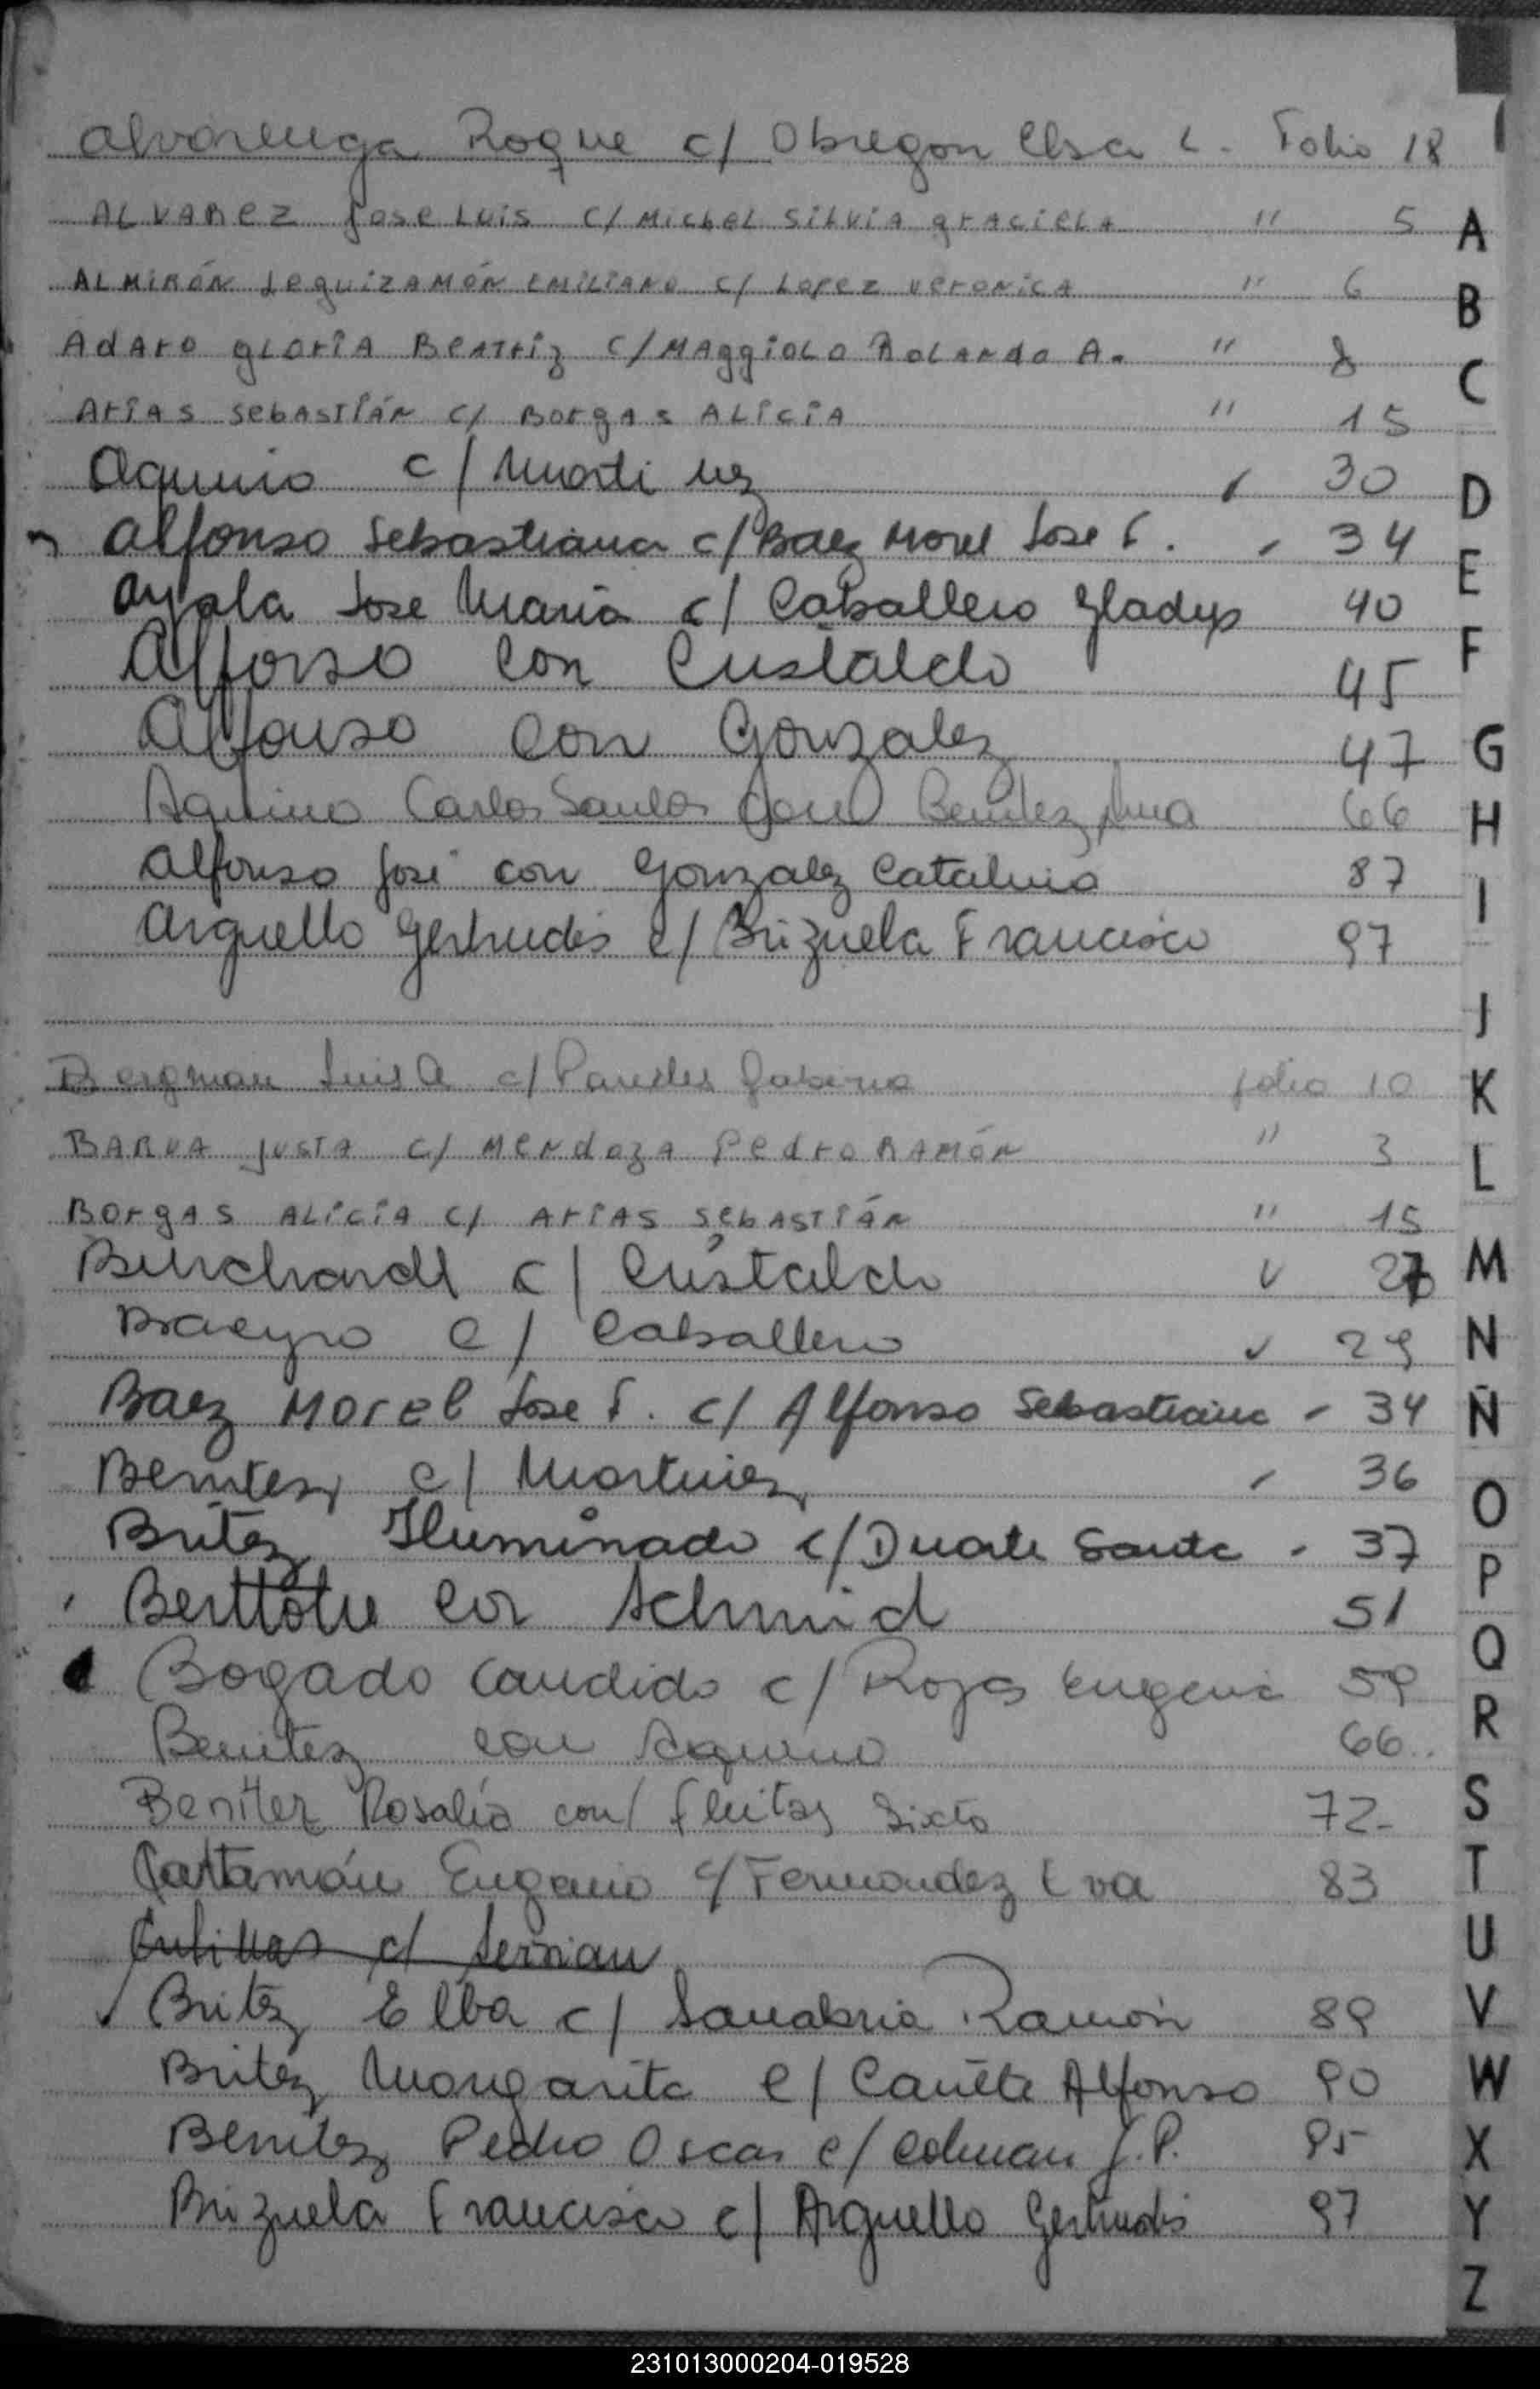 Alvarenga Roque c/ Obregon Elsa L. Folio 18
ALVAREZ Jose Luis c/ Michel Silvia Graciela " 5
ALMIRÓN Leguizamón Emiliano c/ Lopez Veronica " 6
Adaro Gloria Beatriz c/ Maggiolo Rolando A. " 8
Arias Sebastián c/ Borgas Alicia " 15
Aquino c/ Martinez 30
Alfonso Sebastiana c/ Baez Morel Jose F. 34
Ayala Jose Maria c/ Caballero Gladys 40
Alfonso con Cristaldo 45
Alfonso con Gonzalez 47
Aquino Carlos Santos con Benitez Ana 66
Alfonso José con Gonzalez Catalina 87
Arguello Gertrudis c/ Brizuela Francisco 97
Bergman Luis A c/ Paredes Gabina folio 10
BARUA Justa c/ Mendoza Pedro Ramón " 3
Borgas Alicia c/ Arias Sebastián " 15
Burchardt c/ Cristaldo
Braeyro c/ Caballero 29
Baez Morel Jose F. c/ Alfonso Sebastiana 34
Benitez c/ Martinez 36
Britez Iluminado c/ Duarte Santa 37
con Schmid 51
Bogado Candido c/ Rojas Eugenia 59
Benitez con Aquino 66
Benitez Rosalía con Fleitas Sixto 72
Eugenio c/ Fernandez Eva 83
c/ Servian
Britez Elba c/ Sanabria Ramón 89
Britez Margarita c/ Cañete Alfonso 90
Benitez Pedro Oscar c/ Colman J.P. 95
Brizuela Francisco c/ Arguello Gertrudis 97
A
B
C
D
E
F
G
H
I
J
K
L
M
N
Ñ
O
P
Q
R
S
T
U
V
W
X
Y
Z
231013000204-019528